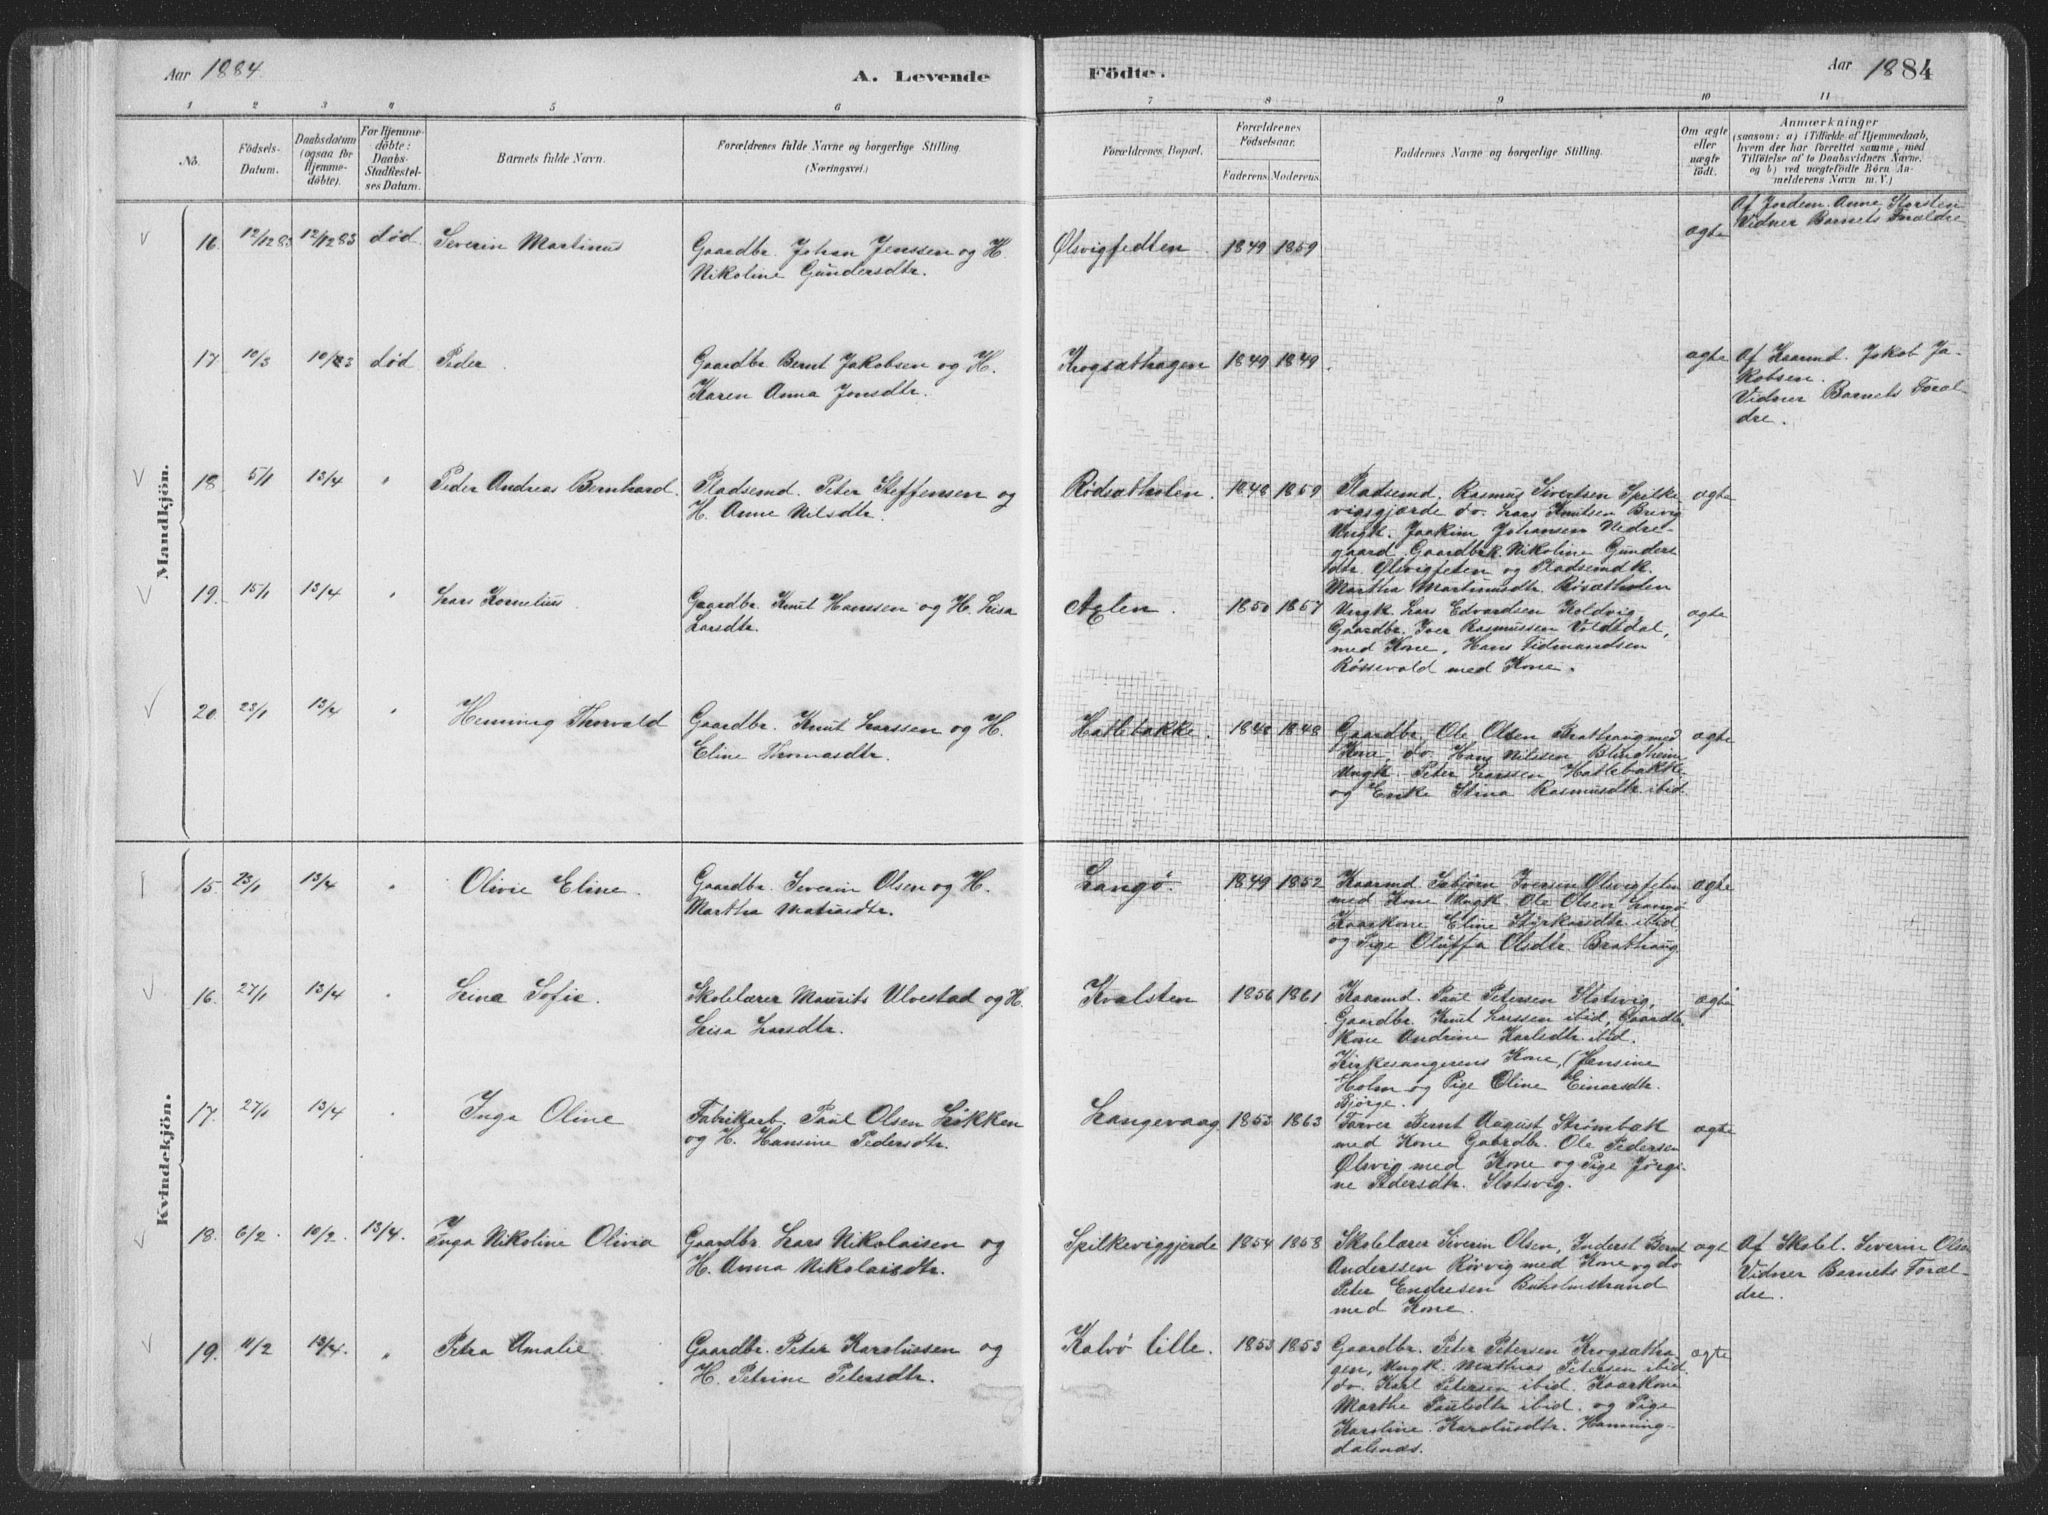 Aar 1884
A. Levende
Födte.
Aar 1884
1 2 3 4 5 6 7 8 9 10 11
No.
Födsels-
Datum.
Daabsdatum
(ogsaa for
Hjemme-
döbte).
For Hjemme-
döbte:
Daabs-
Stadfæstel-
ses Datum.
Barnets fulde Navn.
Forældrenes fulde Navne og borgerlige Stilling.
(Næringsvei.)
Forældrenes Bopæl.
Forældrenes
Födselsaar.
Faderens. Moderens.
Faddernes Navne og borgerlige Stilling.
Om ægte
eller
uægte
født.
Anmærkninger
(saasom: a) i Tilfælde af Hjemmedaab,
hvem der har forrettet samme, med
Tilföielse af to Daabsvidners Navne.
og b) ved uægtefödte Börn An-
melderens Navn m. V.)
Mandkjön.
16. 12/12 83 12/12 83 død. Severin Martinus
Gaardbr. Johan Jenssen og H.
Nikoline Gundersdtr.
Ølsvigfedten 1849 1859
ægte
Af Jordem. Anne Torsten
Vidner Barnets Forældre
17 10/3 død Peder
Gaardbr Bernt Jakobsen og H.
Karen Anna Jonsdtr.
Krogsæthagen 1849 1849
ægte
Af Kaarmd. Jokob Ja-
kobsen.
Vidner Barnets Foræl-
dre.
18 5/1 13/4 " Peder Andreas Bernhard.
Pladsemd. Peter Steffensen og
H. Anne Nilsdtr.
Rødsætholen. 1848 1859
Pladsemd. Rasmus Sivertsen Spilke
vigsgjærde do. Lars Knutsen Brevig
Ungk. Joakim Johansen Nedre-
gaard. Gaardbrk. Nikoline Gunders
dtr. Ølsvigfeten og Pladsemdk.
Martha Martinusdtr. Røsætholen
ægte
19. 15/1 13/4 " Lars Kornelius
Gaardbr. Knut Hanssen og H. Lisa
Larsdtr.
Aglen. 1850 1857
Ungk. Lars Edvardsen Koldvig
Gaardbr. Iver Rasmussen Voldsdal,
med Kone, Hans Tidmandsen
Røssevold med Kone.
ægte
20. 23/1 13/4 " Henning Thorvald
Gaardbr. Knut Larssen og H.
Eline Thomasdtr.
Hatlebakke. 1848 1848
Gaardbr. Ole Olsen Brathaug med
Kone, do. Hans Nilssen Blindheim
Ungk. Peter Larssen Hatlebakke
og Enke Stina Rasmusdtr. ibid
ægte
Kvindekjön.
15. 23/1 13/4 " Olivie Eline.
Gaardbr. Severin Olsen og H.
Martha Matiasdtr.
Langø. 1849 1852
Kaarmd. Isbjørn Iversen Ølsvigfeten
med Kone Ungk Ole Olsen Langø
Kaarkone Eline Styrkorsdtr. ibid
og Pige Oluffa Olsdtr. Brathaug
ægte
16. 27/1 13/4 " Lina Sofie.
Skolelærer Maurits Ulvestad og H.
Lisa Larsdtr.
Kvalsten 1856 1861
Kaarmd. Paul Petersen Slotsvig,
Gaardbr. Knut Larssen ibid, Gaardbr.
kone Andrine Karlsdtr. ibid.
Kirkesangerens Kone, Jensine
Holm og Pige Oline Einarsdtr.
Bjørge.
ægte
17. 27/1 13/4 " Inga Oline
Fabrikarb. Paul Olsen Løkken
og H. Hansine Pedersdtr.
Langevaag 1853 1863
Farver Bernt August Strømbæk
med Kone Gaardbr. Ole Pedersen
Ølsvig med Kone og Pige Jørgi-
ne Pedersdtr. Slotsvig.
ægte
18. 6/2. 10/2. 13/4. Inga Nikoline Olivia
Gaardbr Lars Nikolaisen og
H. Anna Nikolaisdtr.
Spilkeviggjerde 1854 1858
Skolelærer Severin Olsen, Inderst Bernt
Anderssen Rørvig med Kone og do
Peter Endresen Buholmstrand
med Kone.
ægt
Af Skolel. Severin Olsen
Vidner Barnets Foræl-
dre.
19. 11/2 13/4. " Petra Amalie.
Gaardbr. Peter Karolussen og
H. Petrine Petersdtr.
Kalvø lille. 1853 1853
Gaardbr. Peter Petersen Krogsætha-
gen, Ungk. Mathias Petersen ibid
do. Karl Petersen ibid. Kaarkone
Marthe Paulsdtr ibid. og Pige
Karoline Karolusdtr. Hamning-
dalsnæs.
ægte